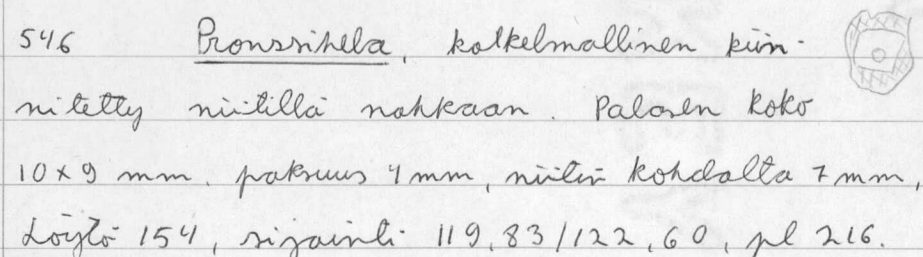 546 Pronssihela, katkelmallinen kiin-
nitetty niitillä nahkaan. Palasen koko
10 x 9 mm. paksuus 4 mm, niitin kohdalta 7 mm,
Löytö 154, sijainti 119,83/122,60, pl 216.